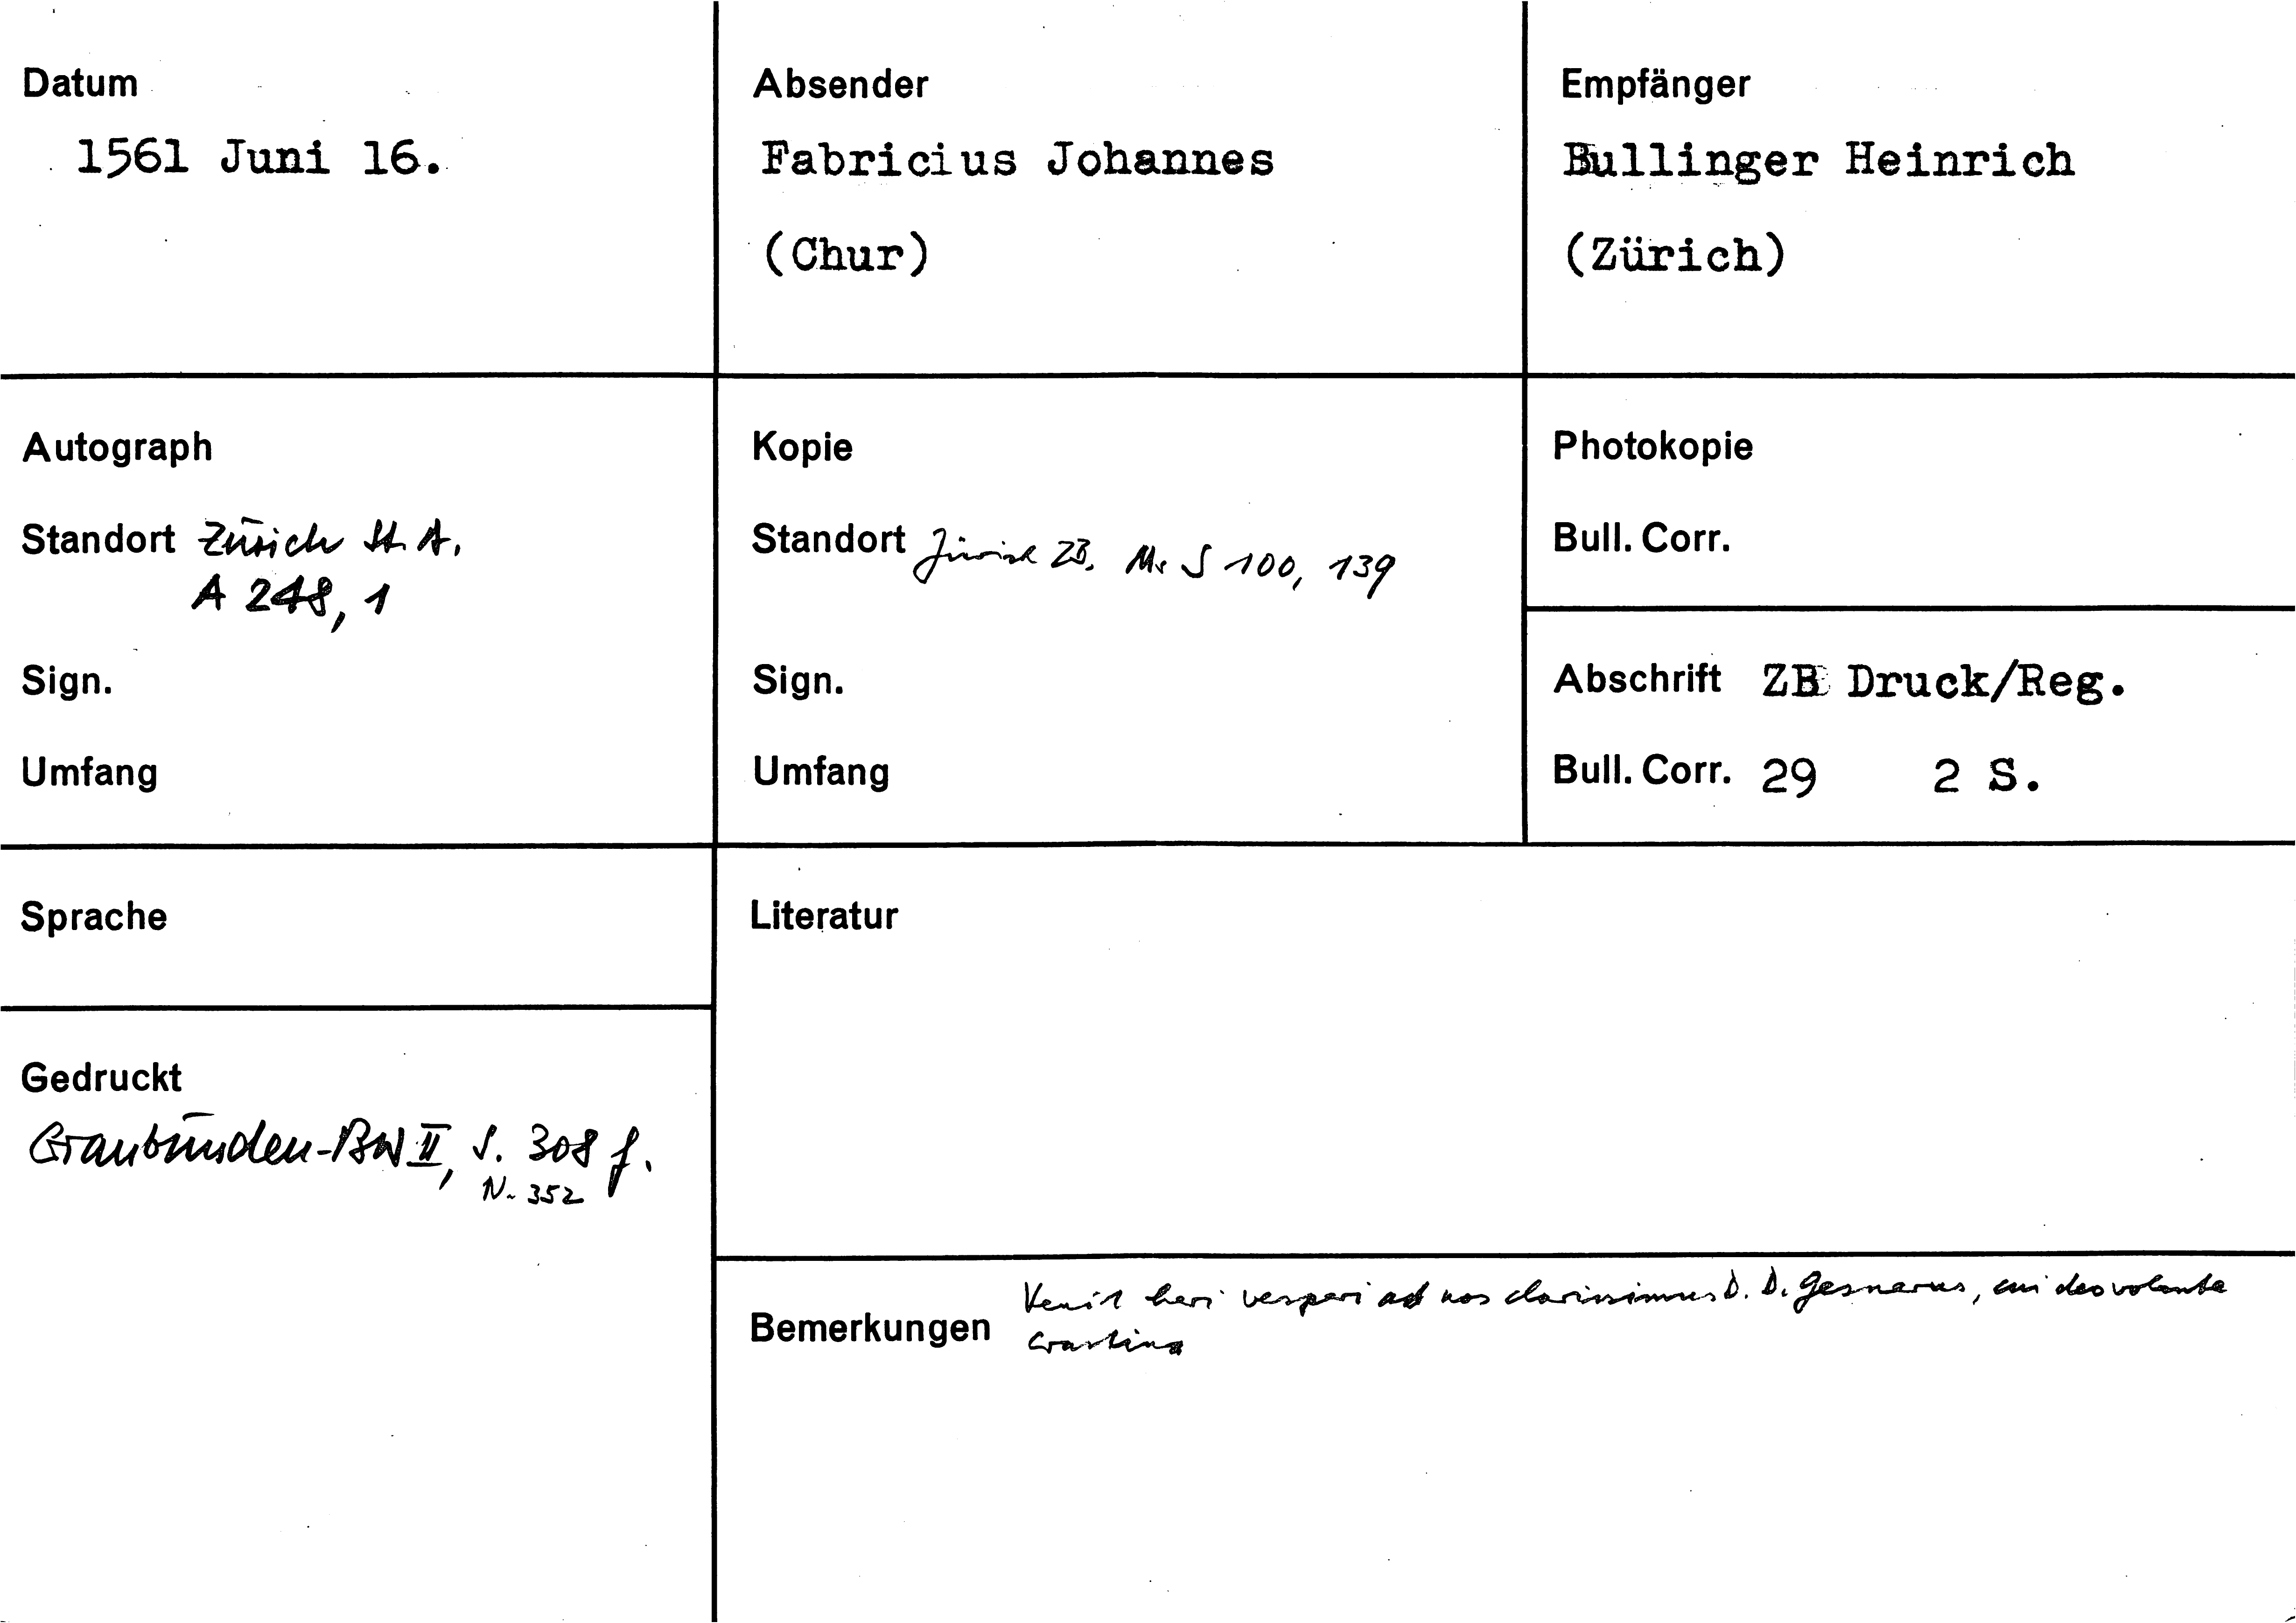 Datum
1561 Juni 16.
Absender
Fabricius Johannes
(Chur)
Empfänger
Bullinger Heinrich
(Zürich)
Autograph
Standort Zürich St. A.
A 248, 1
Sign.
Umfang
Kopie
Standort Zürich ZB, Ms S 100, 139
Sign.
Umfang
Photokopie
Bull. Corr.
Abschrift ZB Druck/Reg.
Bull. Corr. 29 2 S.
Sprache
Gedruckt
Graubünden-BW II, S. 308 f.
N. 352
Literatur
Bemerkungen
Venit heri vesperi ad nos clarissimus D. D. Gesnerus, cui deo volente
crastina